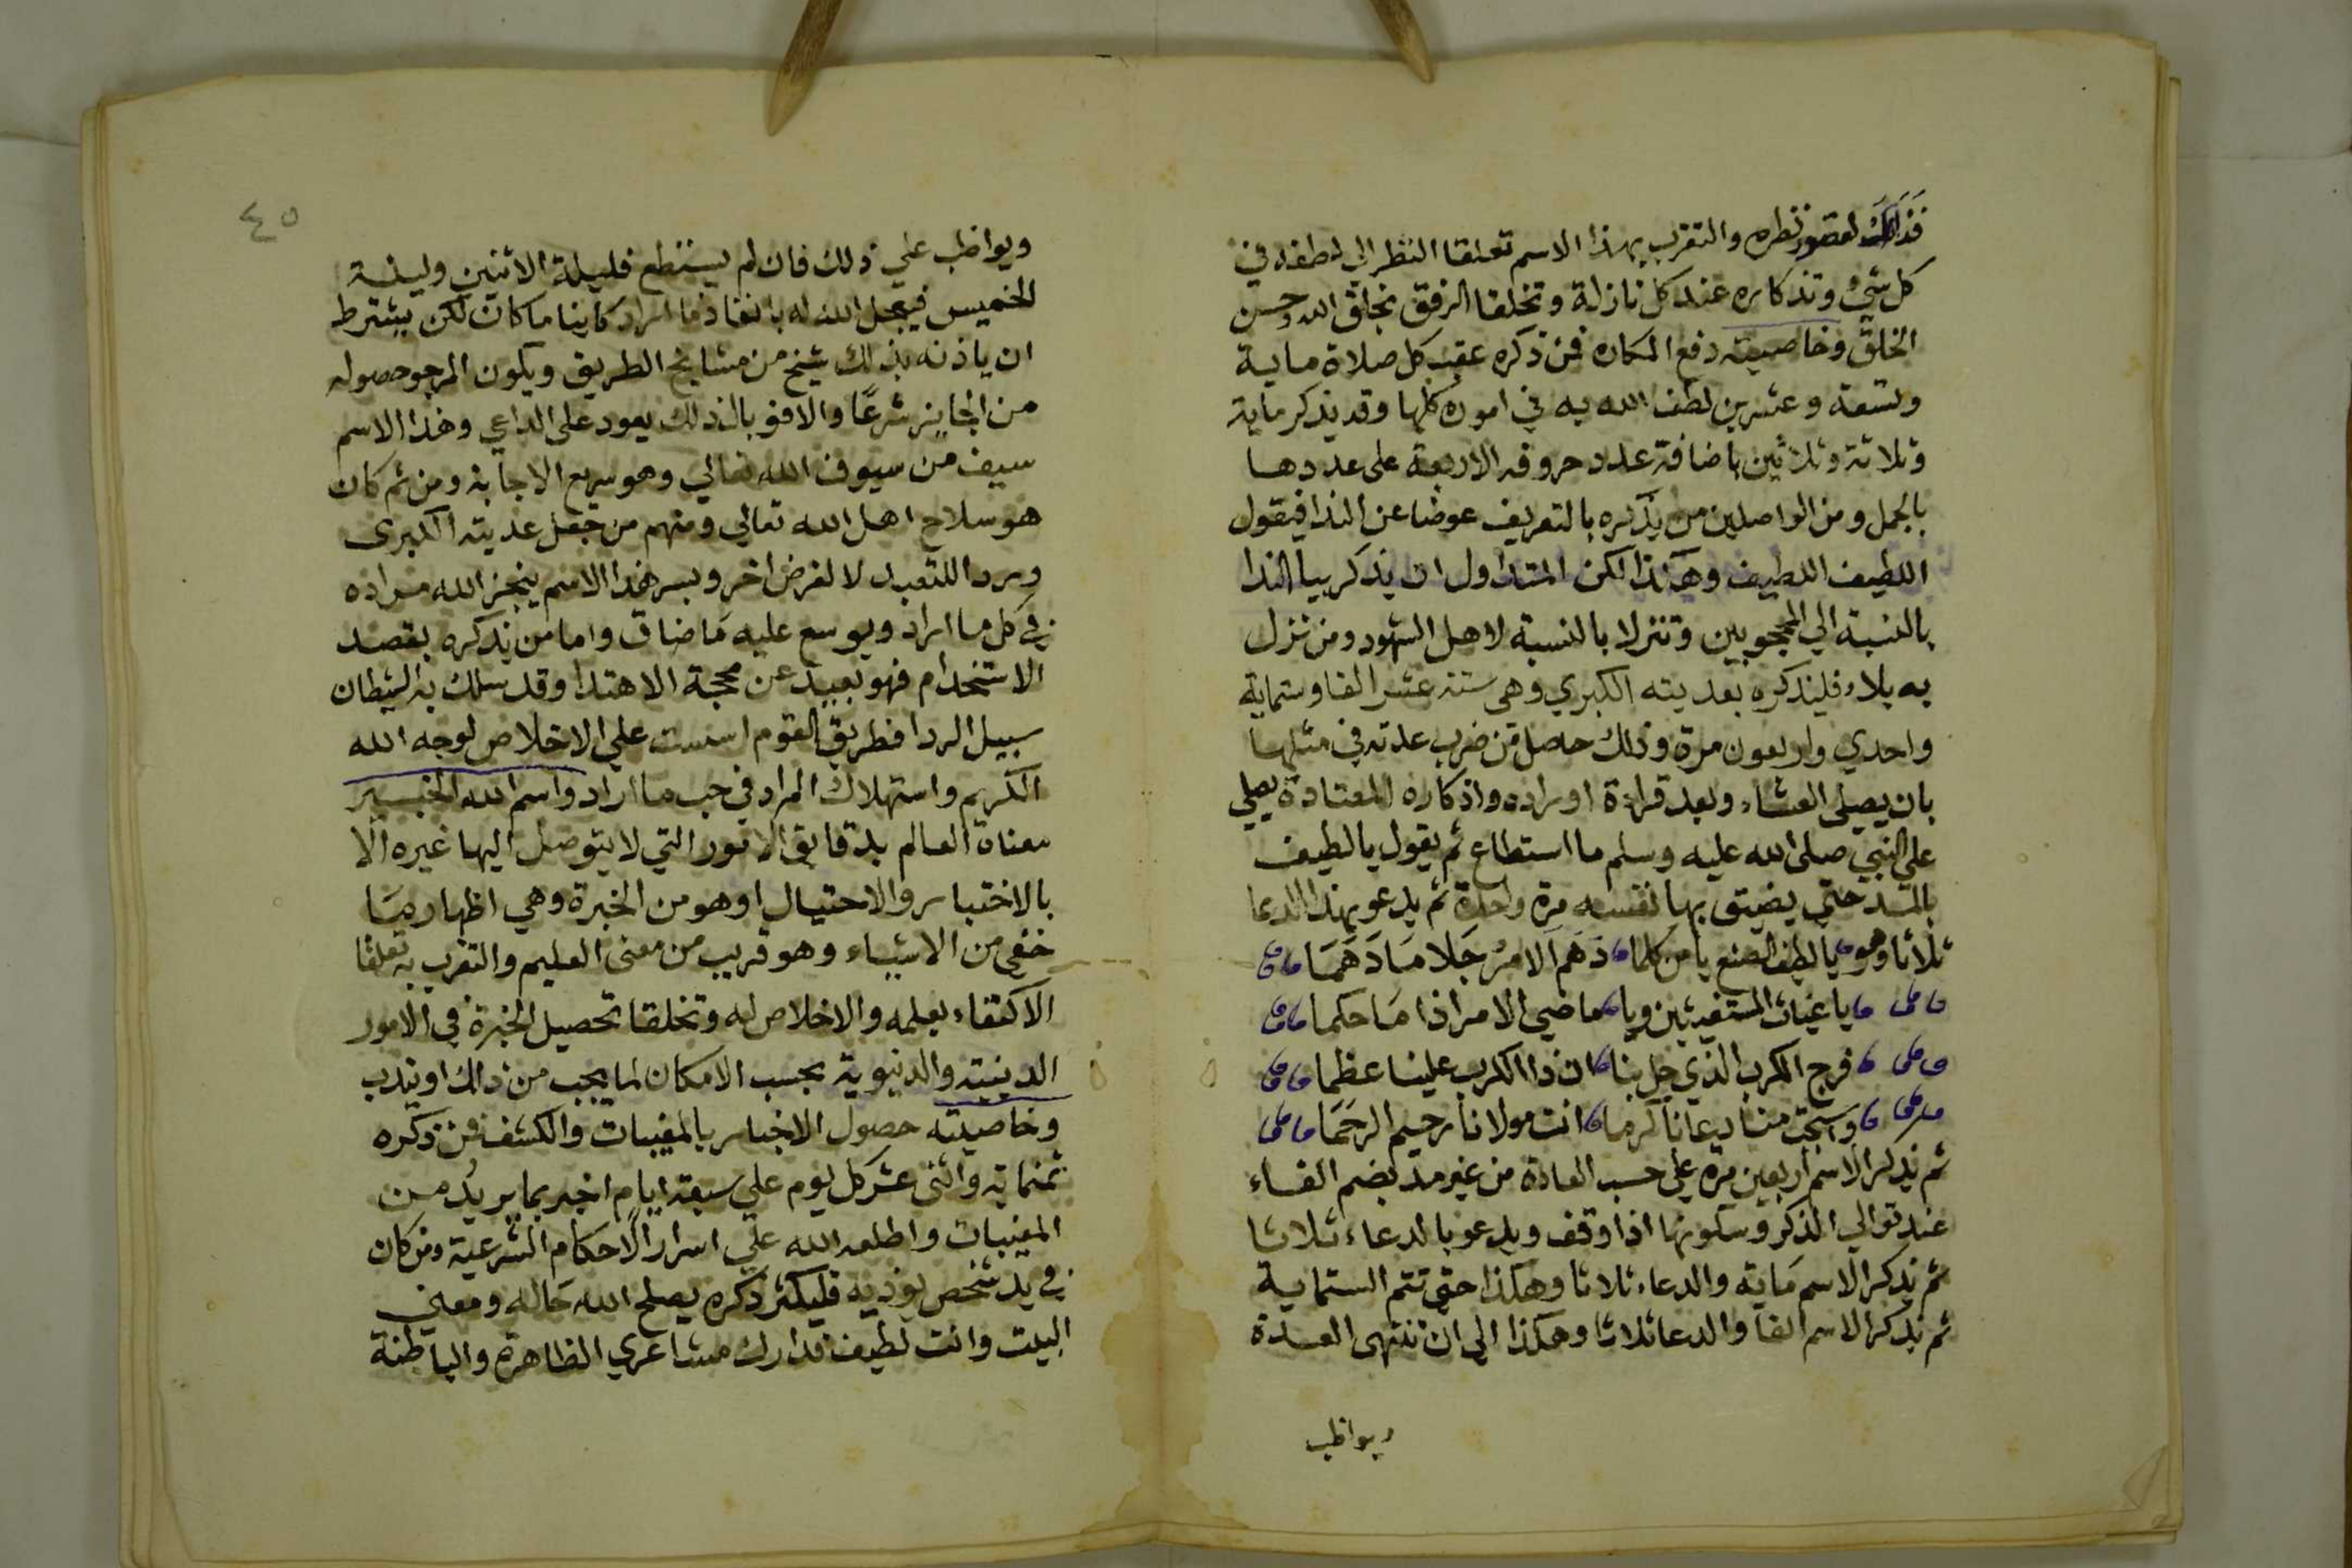 فذلك لقصور نظره والتقرب بهذا الاسم تعلقا النظر الي لطفه في
كل شيء وتذكاره عند كل نازلة وتخلقا الرفق بخلق الله وحسن
الخلق وخاصيته دفع المكاره فمن ذكره عقب كل صلاة ماية
وتسعة وعشرين لطف الله به في اموره كلها وقد يذكر ماية
وثلاثة وثلاثين باضافة عدد حروفه الاربعة على عددها
بالجمل ومن الواصلين من يذكره بالتعريف عوضا عن الندا فيقول
اللطيف اللطيف وهكذا لكن المتداول ان يذكر بيا الندا
بالنسبة الي المحجوبين وتنزلا بالنسبة لاهل الشهود ومن نزل
به بلاء فليذكره بعديته الكبري وهي ستة عشر الفا وستماية
واحدي واربعون مرة وذلك حاصل من ضرب عدته في مثلها
بان يصلي العشاء وبعد قراءة اوراده واذكاره المعتادة يصلي
على النبي صلى الله عليه وسلم ما استطاع ثم يقول يالطيف
بالمد حتي يضيق بها نفسه مرة واحدة ثم يدعو بهذا الدعا
ثلاثا وهو يالطيف الصنع يا من كلما دهم الامر جلا ما دهما
يا غياث المستغيثين ويا ماضي الامر اذا ما حكما
فرج الكرب الذي حل بنا ان ذا الكرب علينا عظما
واستجب منا دعانا كرما انت مولانا رحيم الرحما
ثم يذكر الاسم اربعين مرة علي حسب العادة من غير مد بضم الفاء
عند توالي الذكر وسكونها اذا وقف ويدعو بالدعاء ثلاثا
ثم يذكر الاسم ماية والدعاء ثلاثا وهكذا حتى تتم الستماية
ثم يذكر الاسم الفا والدعا ثلاثا وهكذا الي ان تنتهى العدة
ويواظب
٤٥
ويواظب علي ذلك فان لم يستطع فليلة الاثنين وليلة
الخميس فيعجل الله له بانفاذ ما اراد كاينا ما كان لكن يشترط
ان ياذنه بذلك شيخ من مشايخ الطريق ويكون المرجو حصوله
من الجايز شرعًا والا فوبال ذلك يعود على الداعي وهذا الاسم
سيف من سيوف الله تعالي وهو سريع الاجابة ومن ثم كان
هو سلاح اهل الله تعالي ومنهم من جعل عديته الكبرى
وردا للتعبد لا لغرض اخر وبسر هذا الاسم ينجز الله مراده
في كل ما اراد ويوسع عليه ما ضاق واما من يذكره بقصد
الاستخدام فهو بعيد عن محجة الاهتدا وقد سلك به الشيطان
سبيل الردا فطريق القوم اسست علي الاخلاص لوجه الله
الكريم واستهلاك المراد في حب ما اراد واسم الله الخبير
معناه العالم بدقايق الامور التي لا يتوصل اليها غيره الا
بالاختبار والاحتيال او هو من الخبرة وهي اظهار ما
خفي من الاشياء وهو قريب من معنى العليم والتقرب به تعلقا
الاكتفاء بعلمه والاخلاص له وتخلقا تحصيل الخبرة في الامور
الدينية والدنيوية بحسب الامكان لما يجب من ذلك او يندب
وخاصيته حصول الاخبار بالمغيبات والكشف فمن ذكره
ثمنماية واثنى عشر كل يوم علي سبعة ايام اخبر بما يريد من
المغيبات واطلعه الله علي اسرار الاحكام الشرعية ومن كان
في يد شخص يوذيه فليكثر ذكره يصلح الله حاله ومعنى
البيت وانت لطيف فدارك مشاعري الظاهرة والباطنة